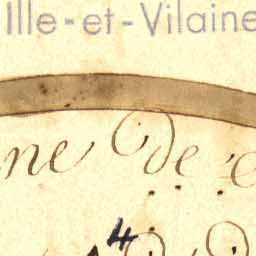 Ille-et-Vilaine
ne de
4